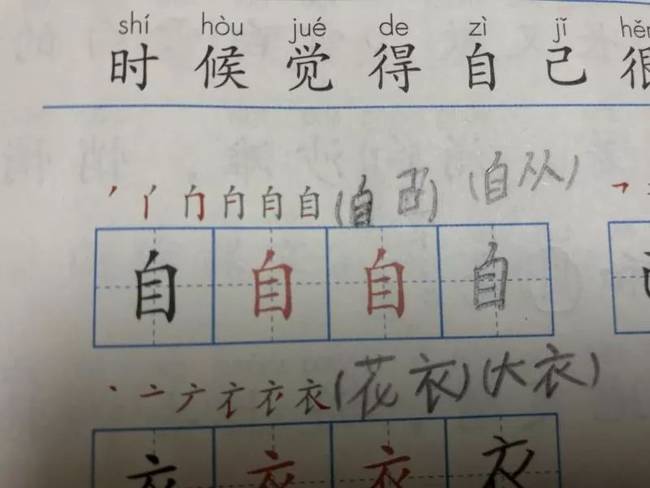 shí hòu jué de zì jǐ hěn
时候觉得自己很
自(自己)(自从)
自自自自
衣(花衣)(大衣)
衣衣衣衣